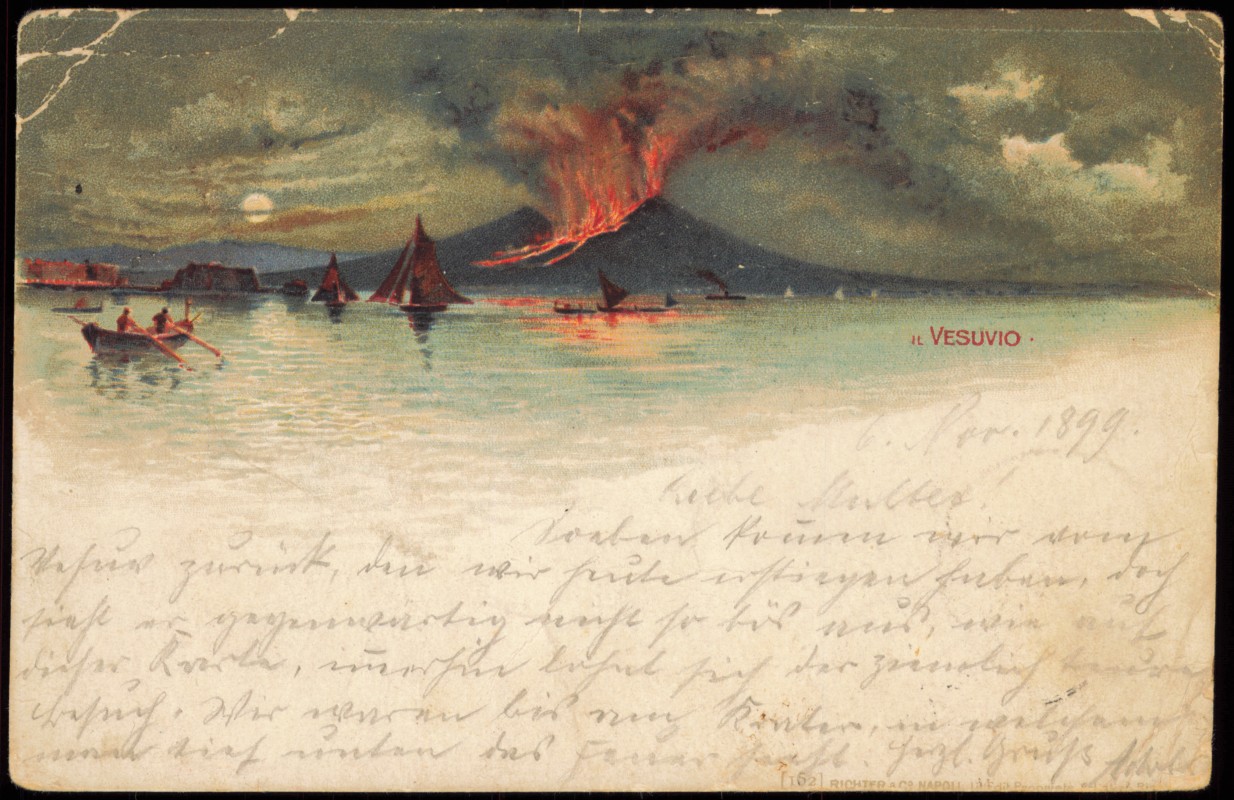 IL VESUVIO
6. Nov. 1899.
Liebe Mutter!
Soeben kommen wir vom
Vesuv zurück, den wir heute erstiegen haben, doch
sieht er gegenwärtig nicht so bös aus, wie auf
dieser Karte, immerhin lohnt sich der ziemlich teure
Besuch. Wir waren bis am Krater, in welchem
man tief unten das Feuer sieht. Herzl. Gruß
[162] RICHTER & Cº NAPOLI